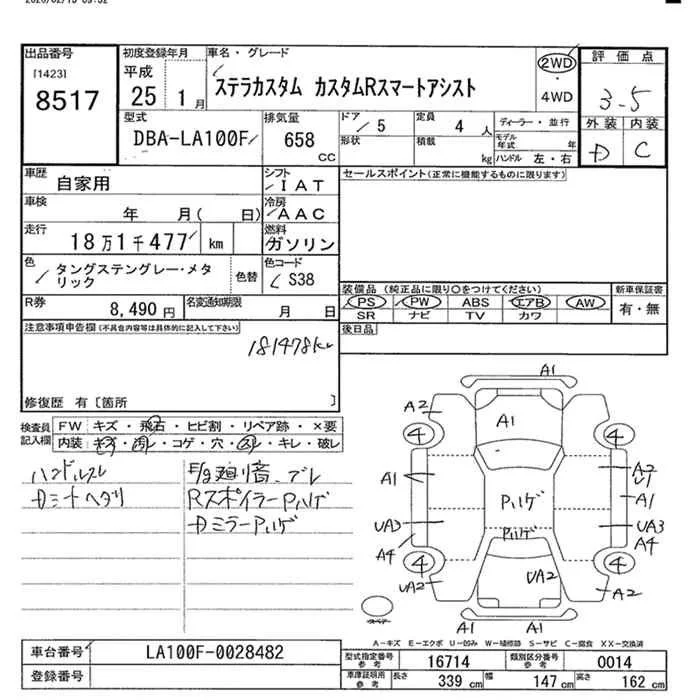 出品番号
[1423]
8517
初度登録年月
平成
25 1月
車名・グレード
ステラカスタム カスタムRスマートアシスト
2WD
・
4WD
評価点
3.5
外装 内装
D C
型式
DBA-LA100F
排気量
658
CC
ドア
/5
形状
定員
4人
積載
kg
ディーラー・並行
モデル
年式 年
ハンドル 左・右
車歴
自家用
シフト
IAT
車検
年 月( 日)
冷房
AAC
走行
18万1千477 km
燃料
ガソリン
色
タングステングレー・メタ
リック
色替
色コード
S38
R券
8,490円
名変通知期限
月 日
セールスポイント(正常に機能するものに限ります)
装備品 (純正品に限り○をつけてください)
PS PW ABS エアB AW
SR ナビ TV カワ
新車保証書
有・無
後日品
注意事項申告欄(不具合内容等は具体的に記入して下さい)
181478km
修復歴 有〔箇所 〕
検査員
記入欄
FW キズ・飛石・ヒビ割・リペア跡・×要
内装 キズ・汚レ・コゲ・穴・スレ・キレ・破レ
ハンドルスレ
Dシートヘタリ
Rスポイラーpハゲ
Dミラーpハゲ
A1
A2
A1
4
4
A1
A2
A1
UA3
pハゲ
pハゲ
UA3
A4
A4
4
4
UA2
UA2
A2
A1
A1
スペアー
A-キズ E-エクボ U-凹み W-補修跡 S-サビ C-腐食 XX-交換済
車台番号
LA100F-0028482
登録番号
型式指定番号
参考
16714
類別区分番号
参考
0014
車庫証明用
参考
長さ 339 cm
幅 147 cm
高さ 162 cm